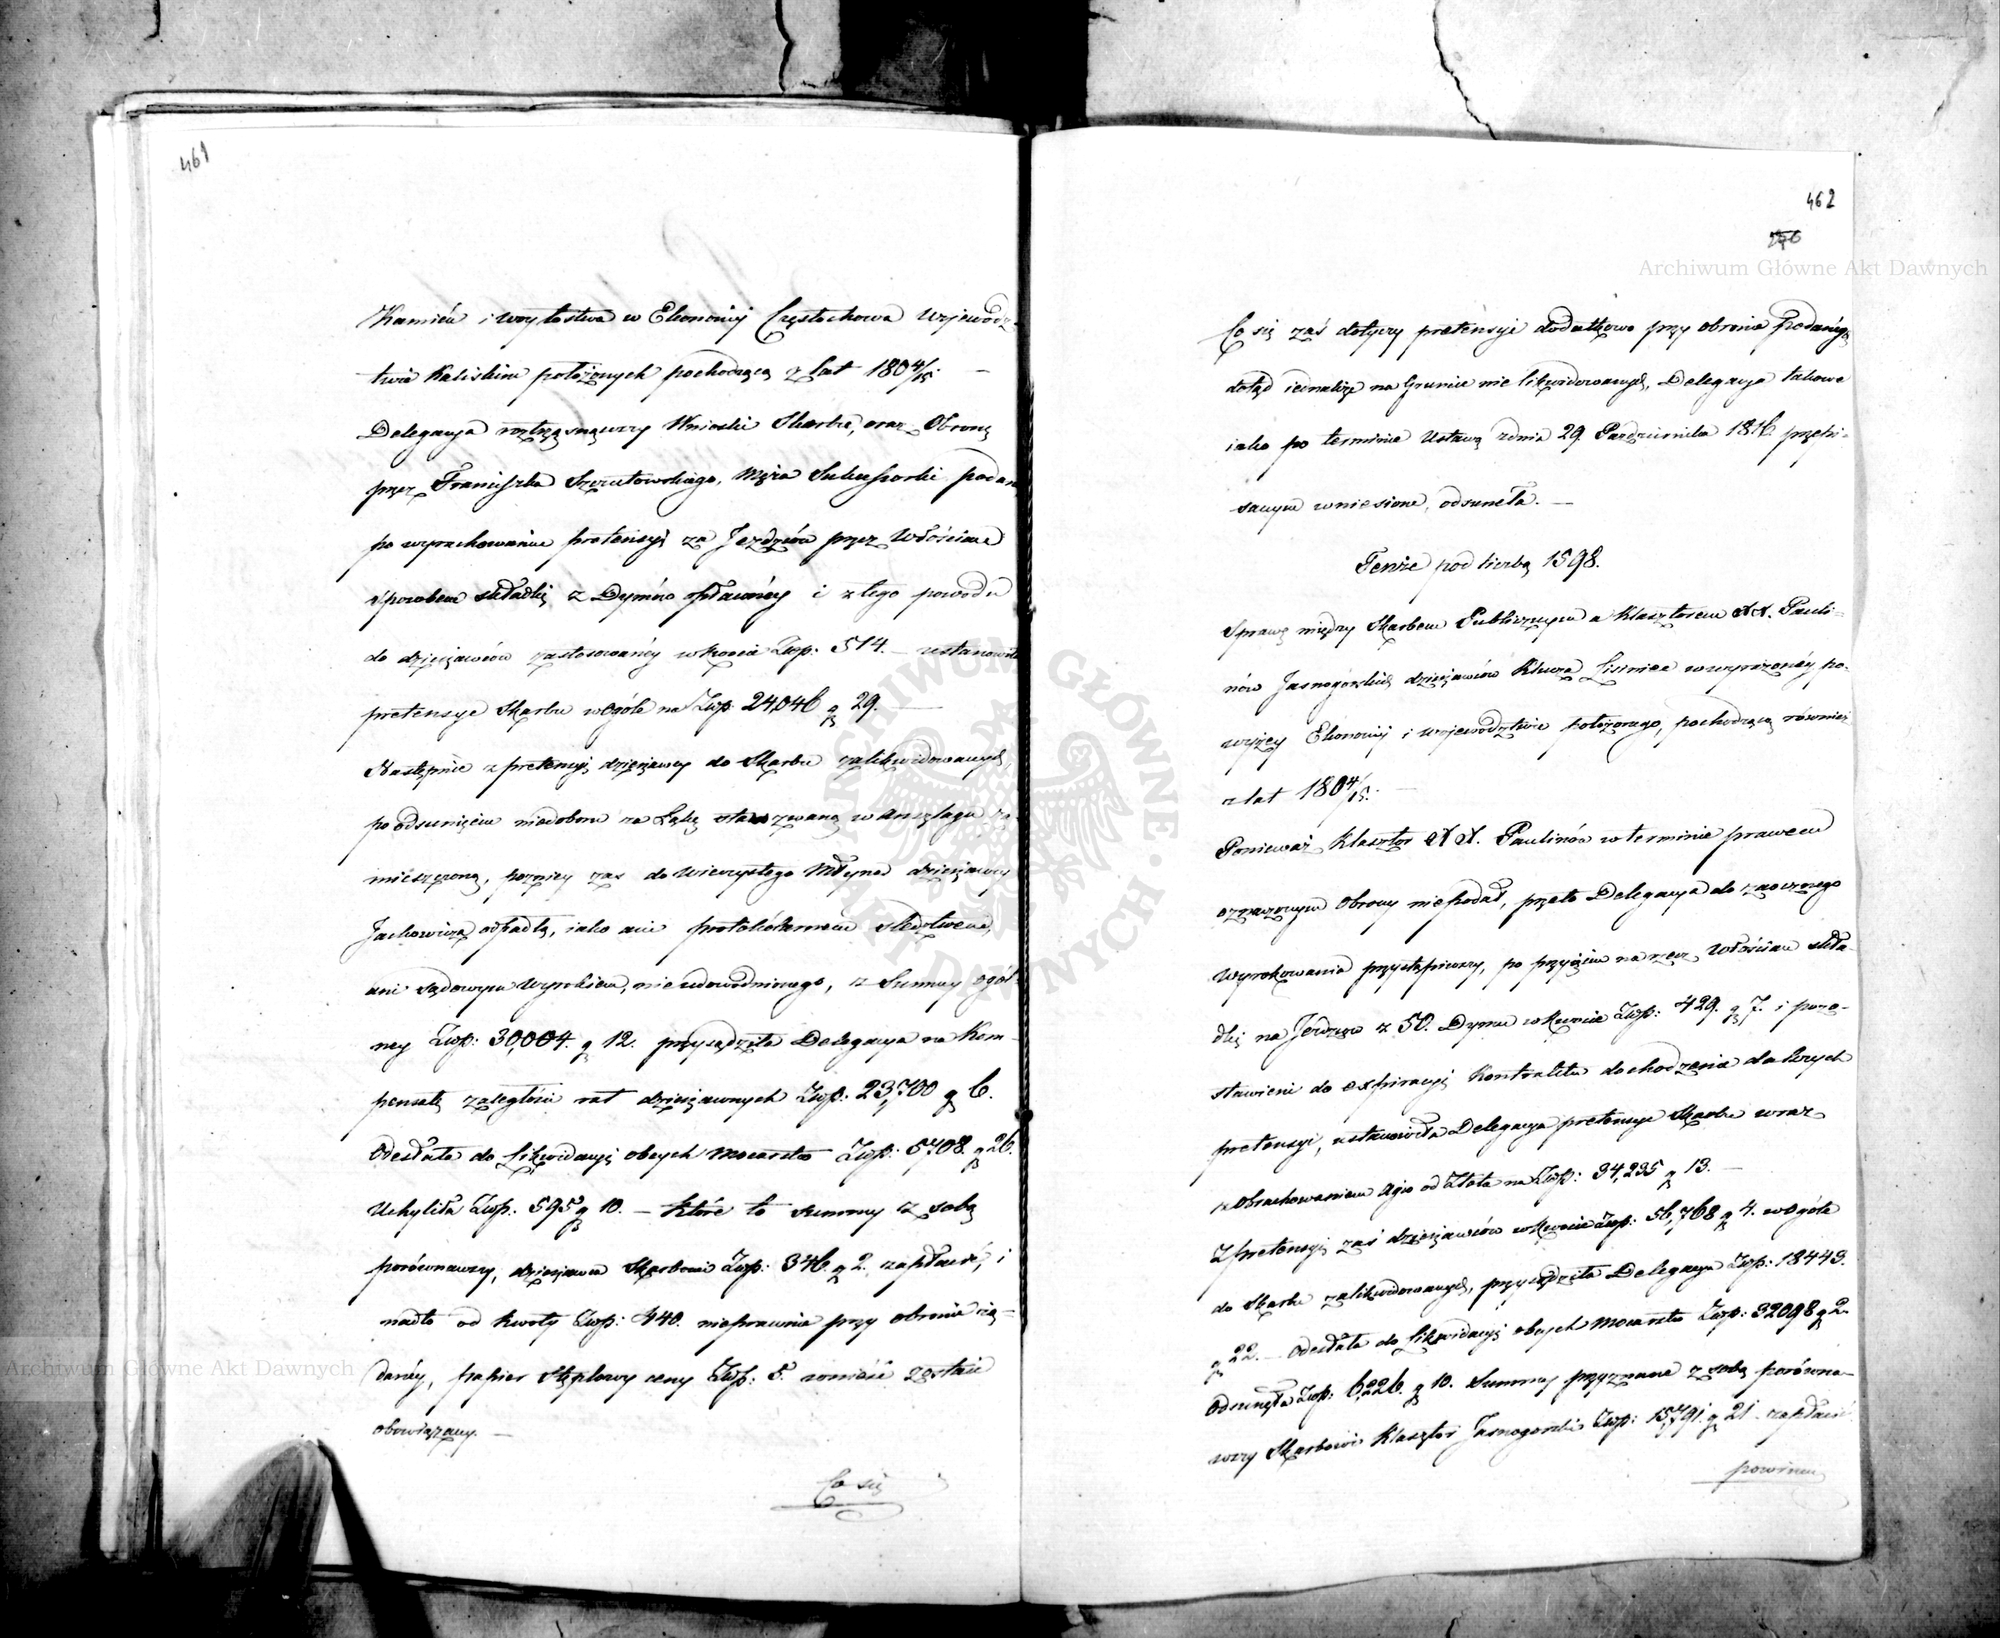 461
Kamień i woytostwa w Ekonomij Częstochowa Wojewódz-
twie Kaliskim położonych pochodzącą z lat 180 4/15. —
Delegacya roztrząsnąwszy Wnioski Skarbu, oraz Obronę
przez Franciszka Szczutowskiego, Męża Sukcessorki podaną
po wyrachowaniu pretensyi za Jezdzców przez Włościan
sposobem składki z Dymów opłaconéy i z tego powodu
do dzierzawców zastosowanéy w kwocie Złłp: 514. — ustanowiła
pretensye Skarbu w ogóle na Złłp: 24,046 gr 29. —
Następnie z pretensyi dzierzawcy do Skarbu zalikwidowanych,
po odsunięciu niedoboru za Łąkę staw zwaną w Anszlagu za-
mieszczoną, pozniey zas do wieczystego Młyna dzierzawcy
Jachowicza odpadłą, iako ani protokólarnem śledztwem,
ani Sądowym Wyrokiem, nieudowodnionego, z Summy ogól-
ney Złłp: 30,004. gr 12. przysądziła Delegacya na Kom-
pensatę zaległości rat dzierzawnych Złłp: 23,700 gr 6.
Odesłała do Likwidacyi obcych Mocarstw Złłp: 5708. gr 26.
Uchyliła Złłp: 595 gr 10. — które to summy z sobą
porównawszy, dzierzawca Skarbowi Złłp: 346. gr 2. zapłacić, i
nadto od kwoty Złłp: 440. nieprawnie przy obronie żą-
danéy, papier Stęplowy ceny Złłp: 5. wnieść zostaie
obowiązany. —
Co się
462
Archiwum Główne Akt Dawnych
Co się zaś dotyczy pretensyi dodatkowo przy obronie podanéy
dotąd iednakże na Gruncie nie likwidowanych, Delegacya takowe
iako po terminie Ustawą z dnia 29. Pazdziernika 1816. przepi-
sanym wniesione, odsunęła. —
Tenże pod liczbą 1598.
Sprawę między Skarbem Publicznym a Klasztorem XX. Pauli-
nów Jasnogórskich dzierzawców Klucza Lisiniec w wyrażonéy po-
wyżey Ekonomij i Województwie położonego, pochodzącą również
z lat 180 4/15. —
Ponieważ Klasztor XX. Paulinów w terminie prawem
oznaczonym Obrony niepodał, przeto Delegacya do zaocznego
Wyrokowania przystąpiwszy, po przyjęciu na rzecz Włościan skła-
dki na Jezdzca z 50. Dymu w kwocie Złłp: 429. gr 7. i pozo-
stawieni do expiracyi Kontraktu dochodzenia dalszych
pretensyi, ustanowiła Delegacya pretensye Skarbu wraz
z obrachowaniem Agio od Złota na Złłp: 34,235 gr 13. —
Z pretensyi zaś dzierzawców w kwocie Złłp: 56,768 gr 4. w ogóle
do Skarbu zalikwidowanych, przysądziła Delegacya Złłp: 18443.
gr 22. — Odesłała do Likwidacyi obcych Mocarstw Złłp: 32098 gr 2.
Odsunęła Złłp: 6,226. gr 10. Summy przyznane z sobą porówna-
wszy Skarbowi Klasztor Jasnogorski Złłp: 15,791. gr 21. zapłacić
powinien
Archiwum Główne Akt Dawnych
ARCHIWUM GŁÓWNE AKT DAWNYCH